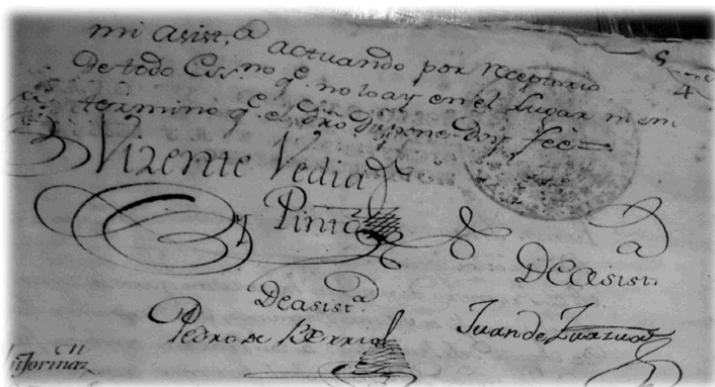 mi asist.a actuando por reseptoria
de todo Ess.no q.e no lo ay en el Lugar ni en
termino q.e el dro dispone doy fee=
Vizente Vedia
y Pinto
De asist.a
De asist.a
Pedro de
Juan de Zuazua